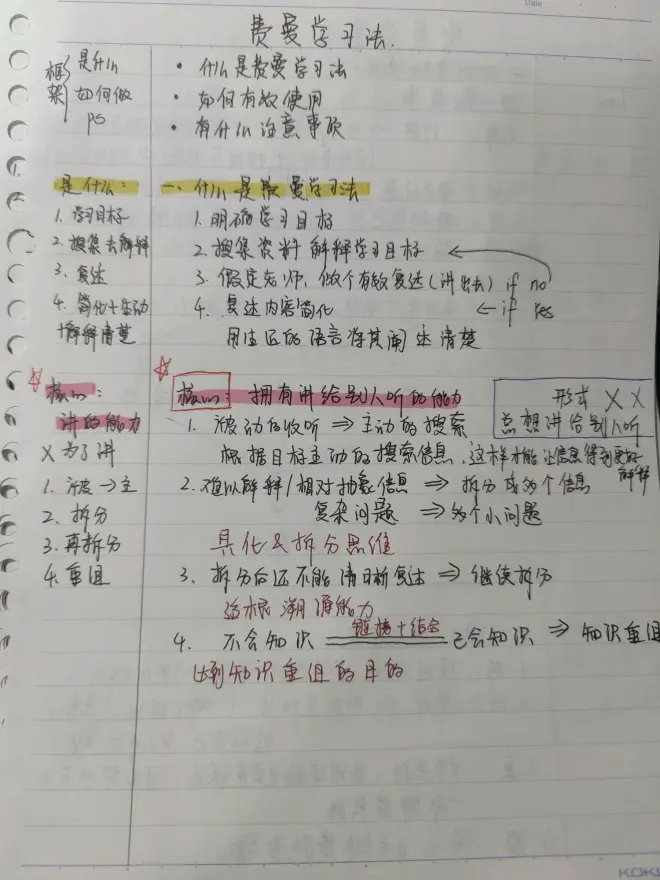 Date
费曼学习法.
框架
是什么
如何做
ps
• 什么是费曼学习法
• 如何有效使用
• 有什么注意事项
是什么:
1. 学习目标
2. 搜集去解释
3. 复述
4. 简化+生动
+解释清楚
一、什么是费曼学习法
1. 明确学习目标
2. 搜集资料 解释学习目标
3. 假定老师, 做个有效复述(讲出去) if no
4. 复述内容简化 ← if yes
用自己的语言将其阐述清楚
核心:
讲的能力
X 为了讲
1. 被→主
2. 拆分
3. 再拆分
4. 重组
核心: 拥有讲给别人听的能力
形式 X X
总想讲给别人听
1. 被动的收听 ⇒ 主动的搜索
根据目标主动的搜索信息, 这样才能让信息得到更好
解释
2. 难以解释/相对抽象信息 ⇒ 拆分成多个信息
复杂问题 ⇒ 多个小问题
具化&拆分思维
3. 拆分后还不能清晰复述 ⇒ 继续拆分
追根溯源能力
4. 不会知识 链接+结合 已会知识 ⇒ 知识重组
达到知识重组的目的
KOKU